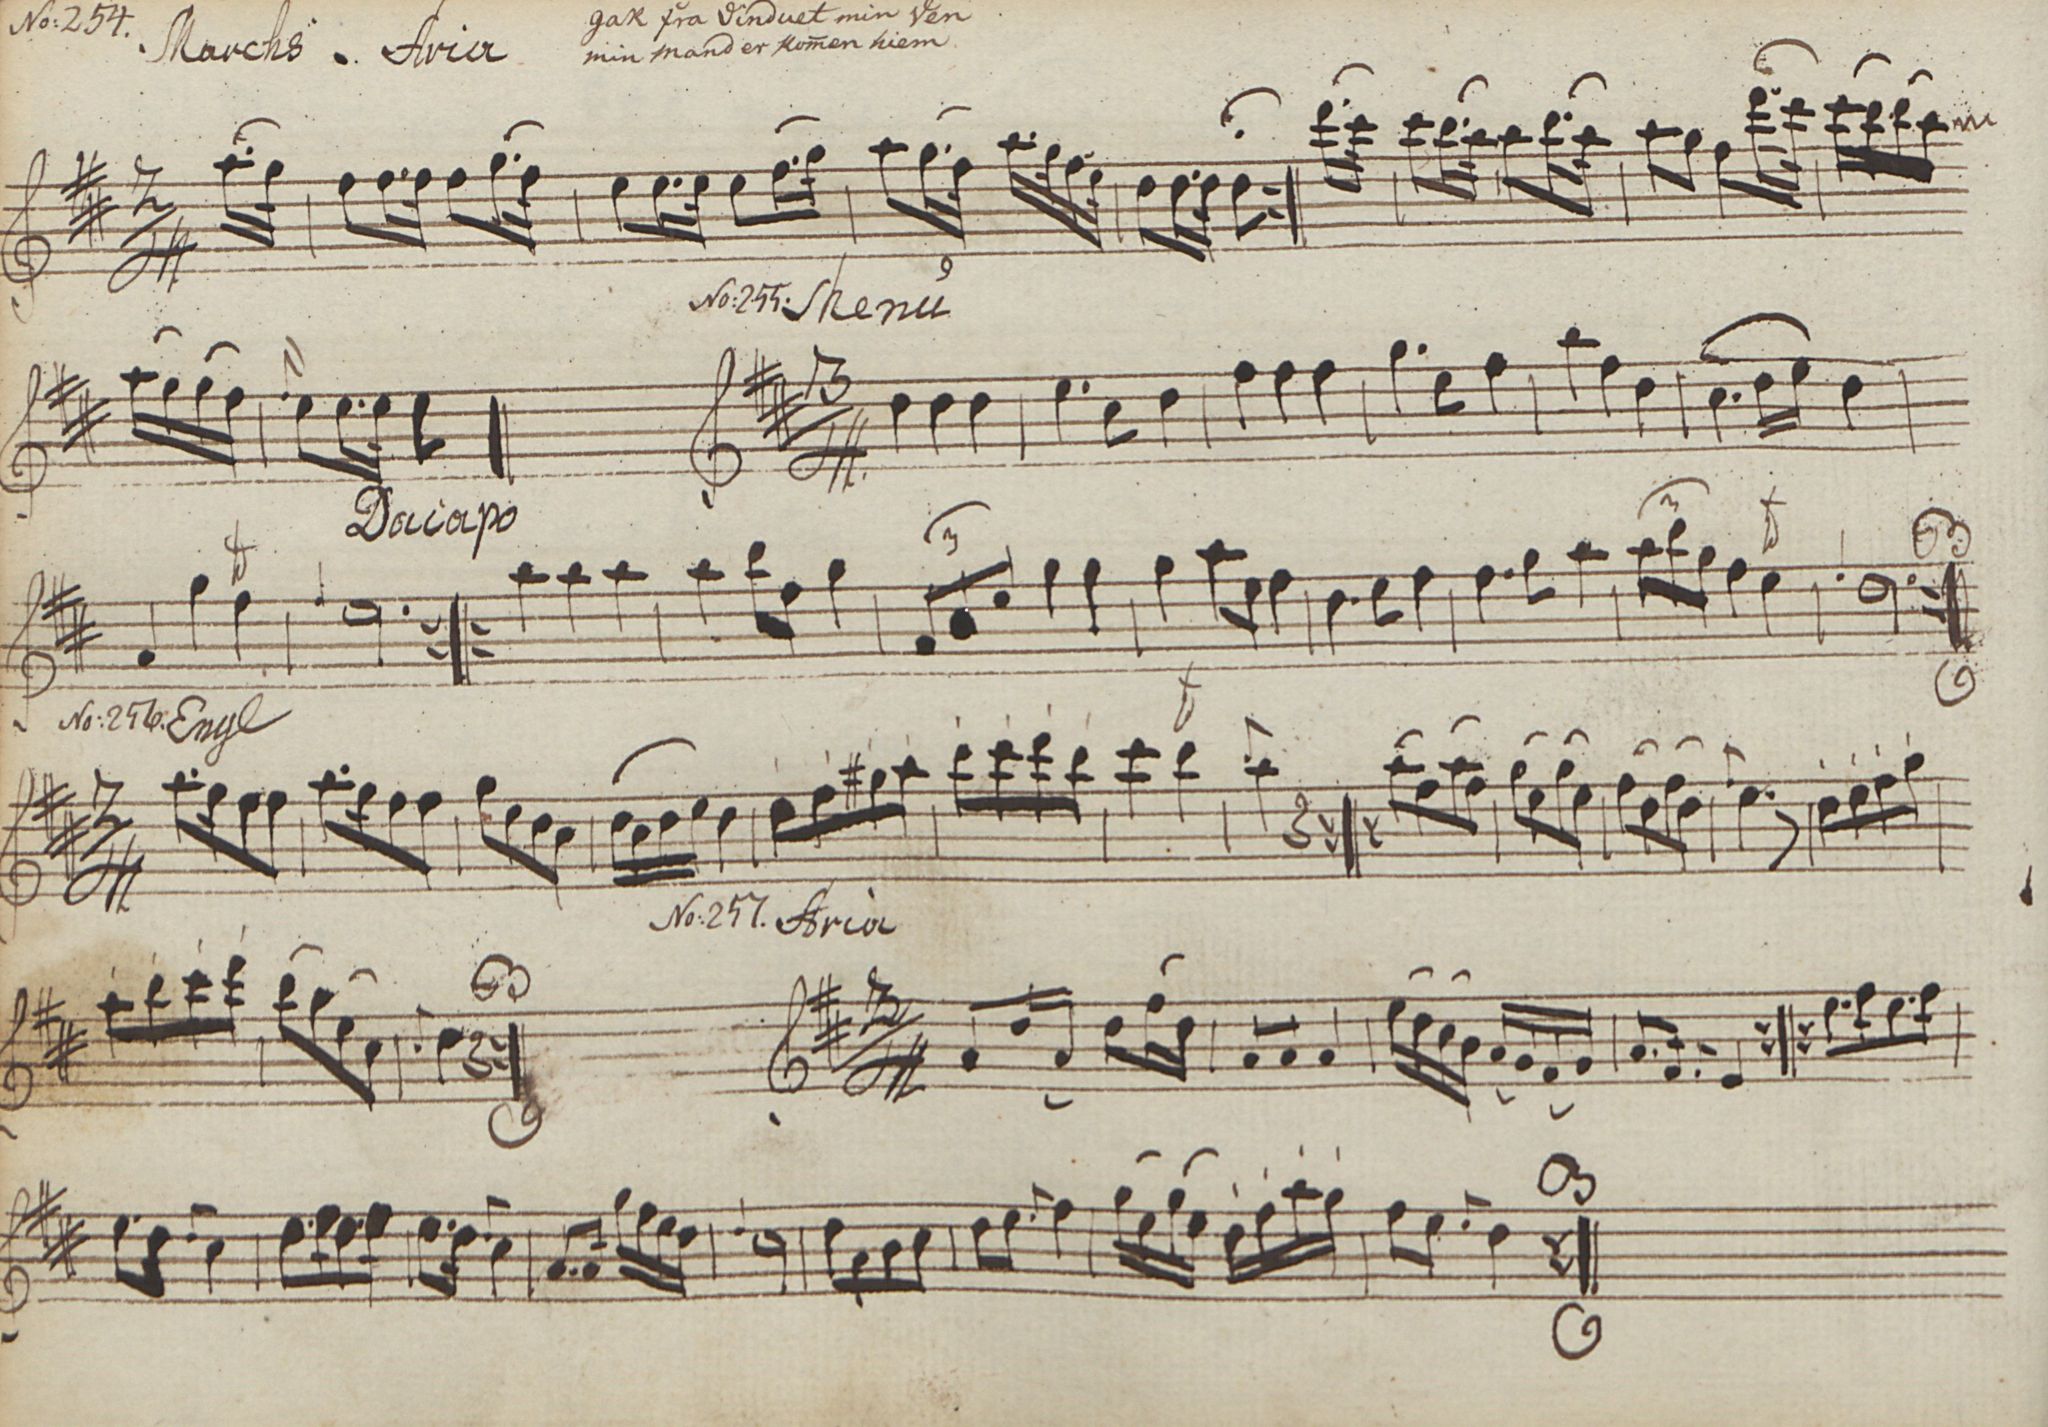 No: 254. Marchs. Aria
gak fra Vinduet min Ven
min mand er kom̄en hiem
No: 255. Menu
Dacapo
3
3
No: 256. Engl
No: 257. Aria